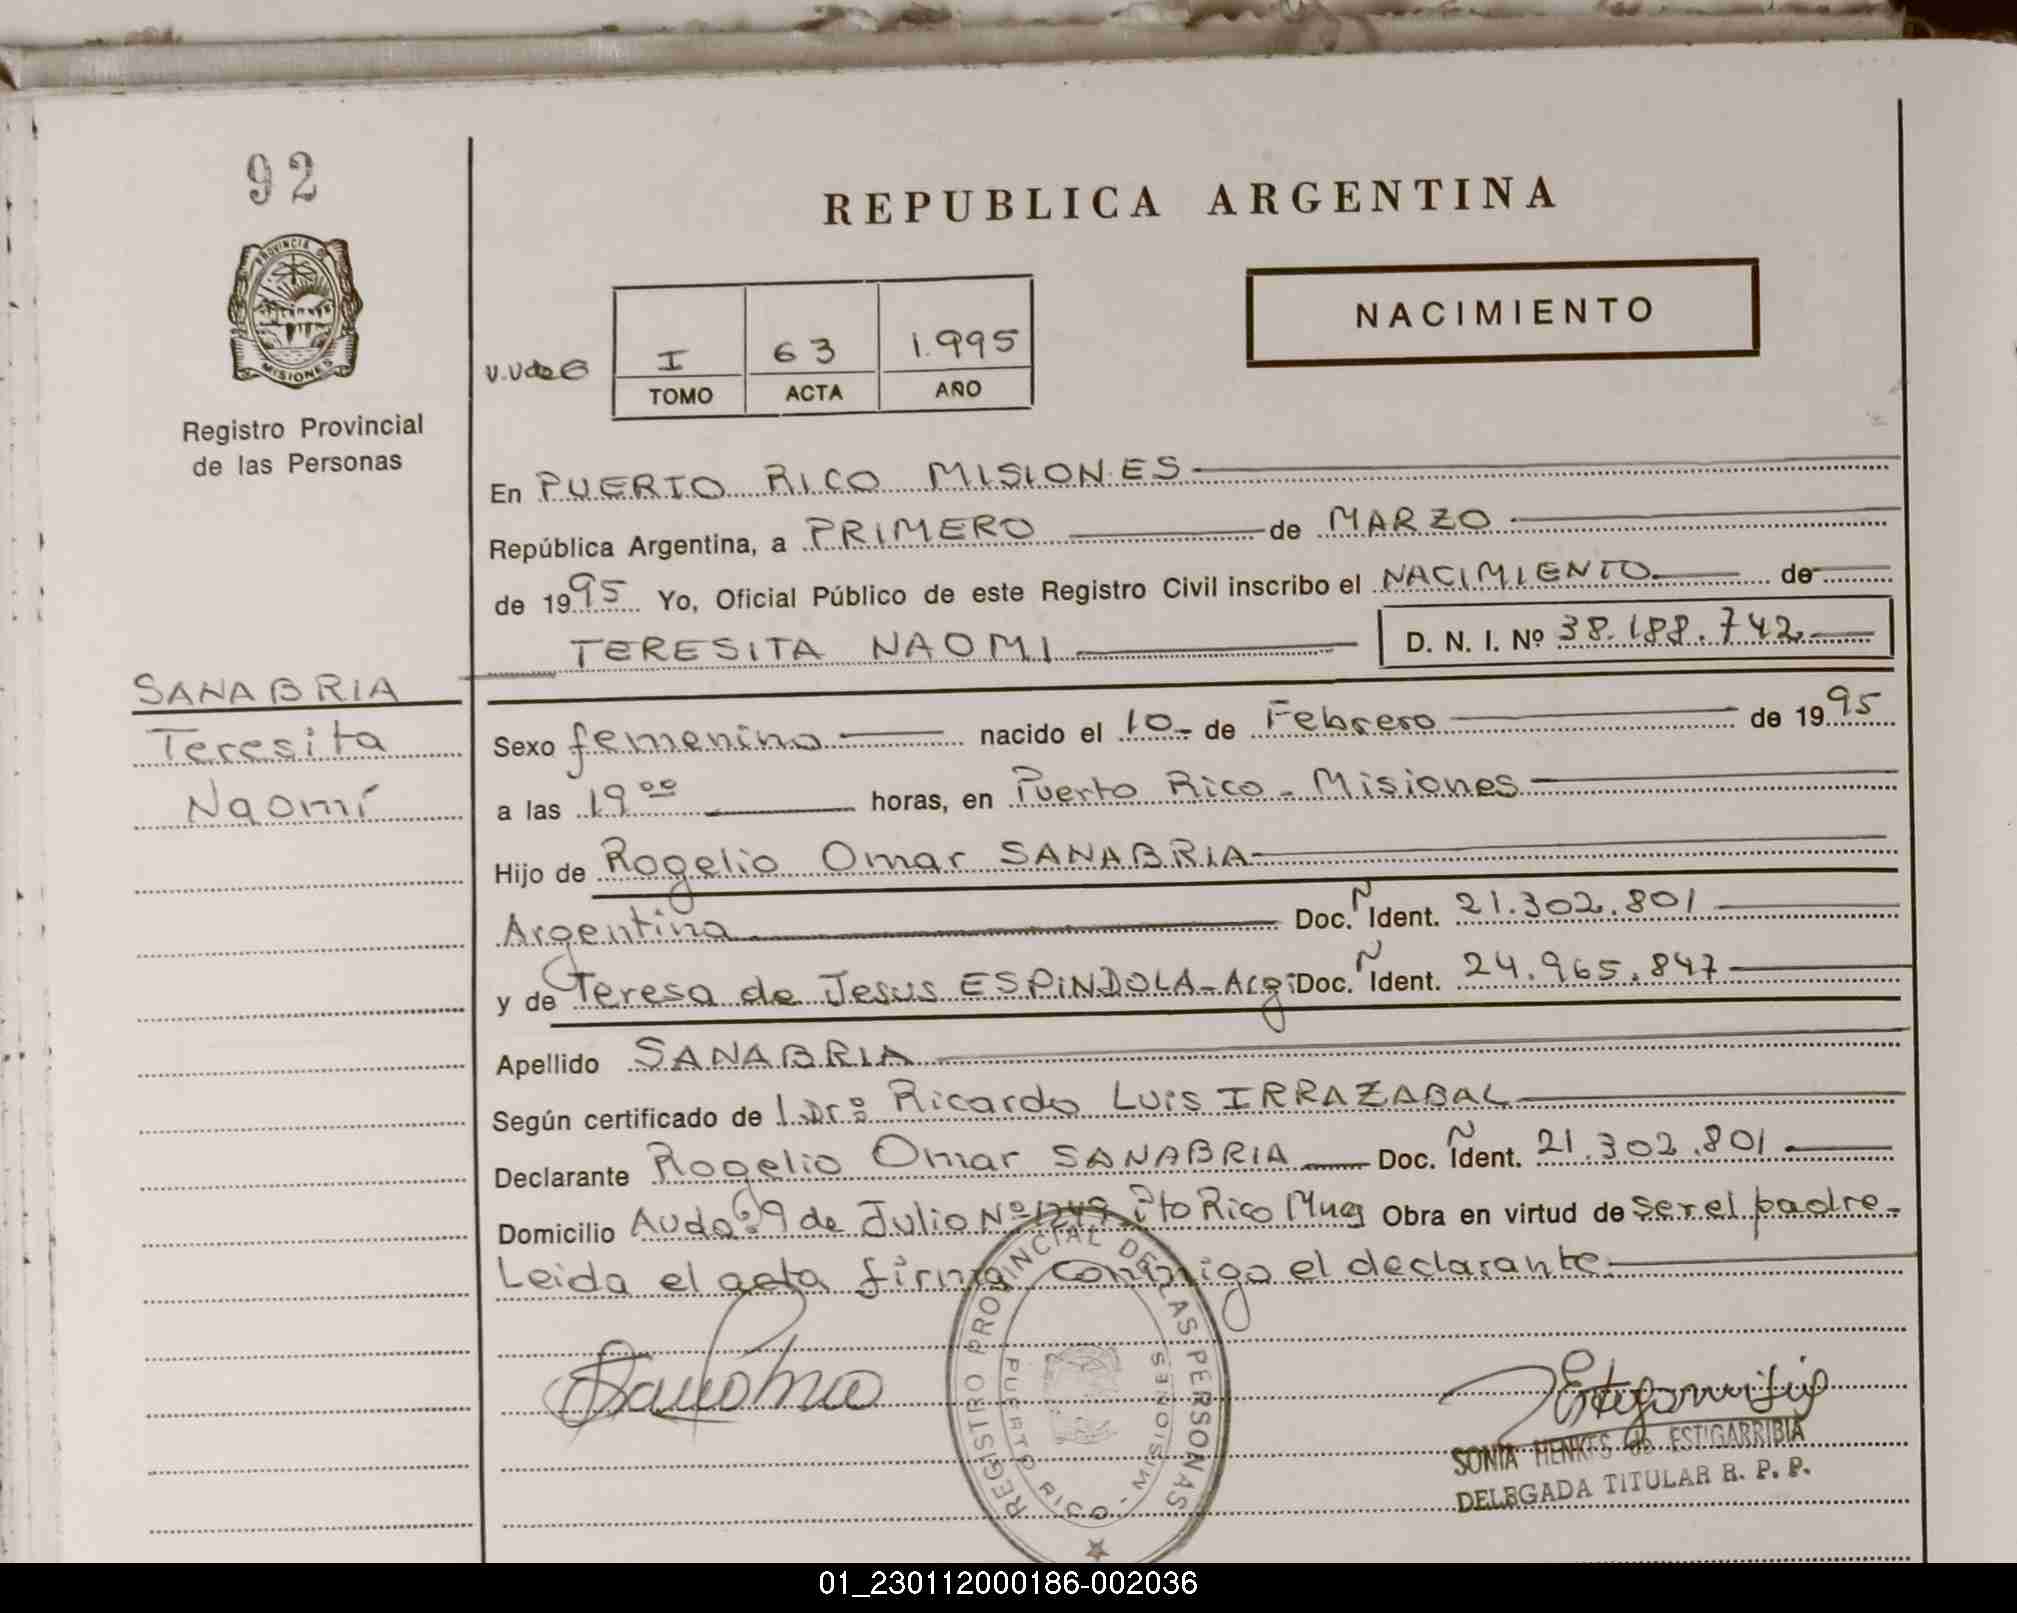 92
PROVINCIA DE
MISIONES
Registro Provincial
de las Personas
REPUBLICA ARGENTINA
NACIMIENTO
I 63 1.995
TOMO ACTA AÑO
En PUERTO RICO MISIONES
República Argentina, a PRIMERO de MARZO
de 1995 Yo, Oficial Público de este Registro Civil inscribo el NACIMIENTO de
TERESITA NAOMI D. N. I. Nº 38.188.742
SANABRIA
Teresita
Naomí
Sexo femenino nacido el 10 de Febrero de 1995
a las 19 00 horas, en Puerto Rico - Misiones
Hijo de Rogelio Omar SANABRIA
Argentina Doc. Ident. 21.302.801
y de Teresa de Jesus ESPINDOLA - Arg. Doc. Ident. 24.965.847
Apellido SANABRIA
Según certificado de Dr: Ricardo Luis IRRAZABAL
Declarante Rogelio Omar SANABRIA Doc. Ident. 21.302.801
Domicilio Avda: 9 de Julio Nº 1249 Pto Rico Mnes Obra en virtud de ser el padre.
Leida el acta firma conmigo el declarante.
REGISTRO PROVINCIAL DE LAS PERSONAS
PUERTO RICO - MISIONES
SONIA HENKES de ESTIGARRIBIA
DELEGADA TITULAR R. P. P.
01_230112000186-002036